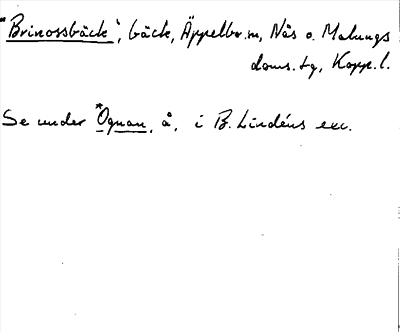 "Brinossbäck", bäck, Äppelbo sn, Nås o. Malungs
doms. tg, Kopp. l.
Se under *Ognan, å, i B. Lindéns exc.